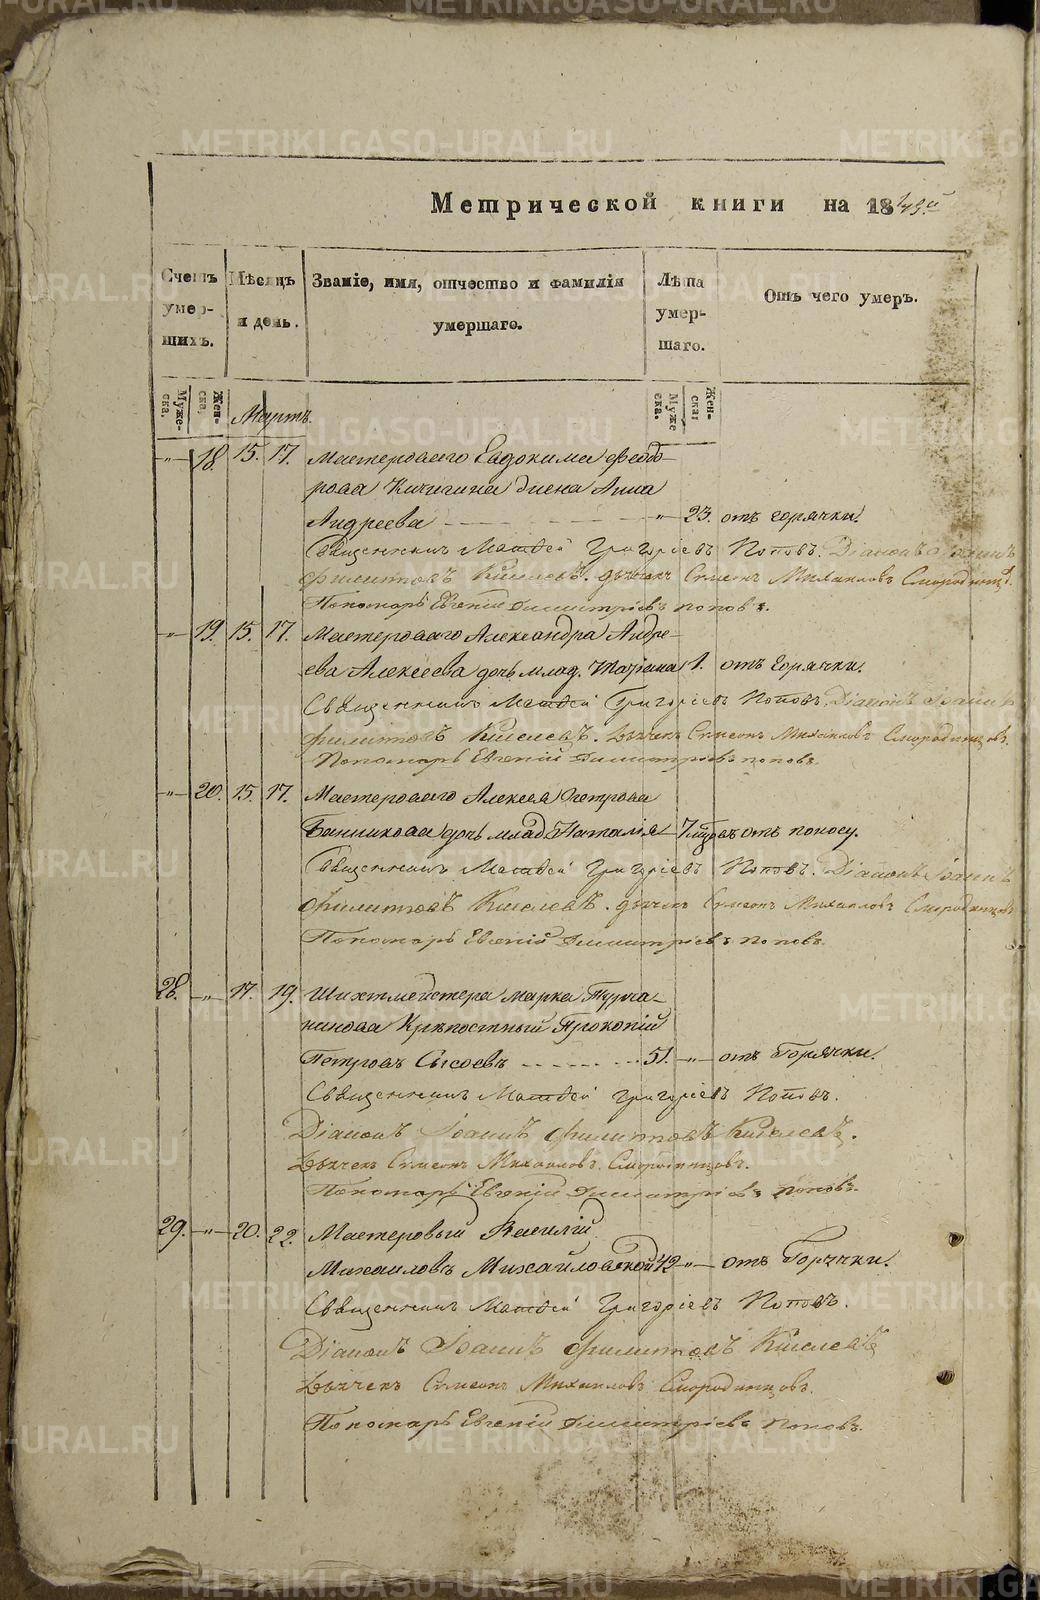 Метрической книги на 1843й
Счетъ умер- шихъ.
Мѣсяцъ и день.
Званіе, имя, отчество и фамилія умершаго.
Лѣта умер- шаго.
Отъ чего умеръ.
Муже- ска.
Жен- ска.
Мартъ.
Муже ска.
Жен- ска
— „ — 18. 15. 17. Мастероваго Евдокима Федо-
рова Кичигина жена Анна
Андреева — „ — 23. отъ горячки.
Священникъ Матфей Григоріевъ Поповъ. Діаконъ Іоаннъ
Филиповъ Киселевъ. Дьячекъ Симеонъ Михаиловъ Смородинцовъ.
Пономарь Евгеній Димитріевъ Поповъ.
— „ — 19. 15. 17. Мастероваго Александра Андре-
ева Алексеева дочь млад. Татіана 1. отъ Горячки.
Священникъ Матфей Григоріевъ Поповъ. Діаконъ Іоаннъ
Филиповъ Киселевъ. Дьячекъ Симеонъ Михаиловъ Смородинцовъ.
Пономарь Евгеній Димитріевъ Поповъ.
— „ — 20. 15. 17. Мастероваго Алексея Петрова
Банникова дочь млад. Наталія — 7 мцовъ отъ поносу.
Священникъ Матфей Григоріевъ Поповъ. Діаконъ Іоаннъ
Филиповъ Киселевъ. Дьячекъ Симеонъ Михаиловъ Смородинцовъ
Пономарь Евгеній Димитріевъ Поповъ.
28. — „ — 17. 19. Шихтмейстера Марка Турча-
нинова Крѣпостный Прокопій
Петровъ Сысоевъ 51. — „ — отъ Горячки.
Священникъ Матфей Григоріевъ Поповъ.
Діаконъ Іоаннъ Филиповъ Киселевъ.
Дьячекъ Симеонъ Михаиловъ Смородинцовъ.
Пономарь Евгеній Димитріевъ Поповъ.
29. — „ — 20. 22. Мастеровый Василій
Михаиловъ Михайловской 42 — „ — отъ Горячки.
Священникъ Матфей Григоріевъ Поповъ.
Діаконъ Іоаннъ Филиповъ Киселевъ
Дьячекъ Симеонъ Михаиловъ Смородинцовъ.
Пономарь Евгеній Димитріевъ Поповъ.
METRIKI.GASO-URAL.RU